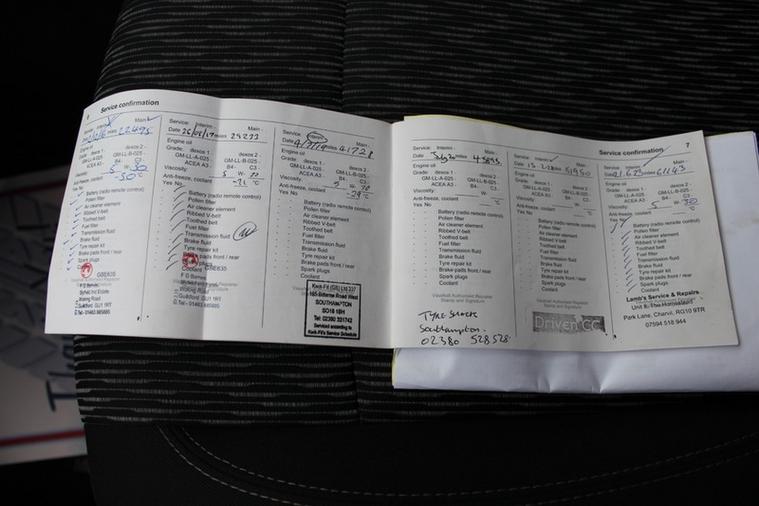 Service confirmation
Service: Interim - Main -
22495
Engine oil
Grade: dexos 1 - dexos 2 -
GM-LL-A-025 - GM-LL-B-025 -
ACEA A3 - B4 -
Viscosity: 5 W- 30
Anti-freeze, coolant -50 °C
Yes No
Battery (radio remote control)
Pollen filter
Air cleaner element
Ribbed V-belt
Toothed belt
Fuel filter
Transmission fluid
Brake fluid
Tyre repair kit
Brake pads front / rear
Spark plugs
Coolant
GBE835
Guildford, GU1 1RT
Service: Interim - Main -
Date 26/05/17 miles 29222
Engine oil
Grade: dexos 1 - dexos 2 -
GM-LL-A-025 - GM-LL-B-025 -
ACEA A3 - B4 - C3 -
Viscosity:
Anti-freeze, coolant
Yes No
Battery (radio remote control)
Pollen filter
Air cleaner element
Ribbed V-belt
Toothed belt
Fuel filter
Transmission fluid
Brake fluid
Tyre repair kit
Brake pads front / rear
Coolant
GBE835
Guildford, GU1 1RT
Service: Interim - Main -
miles 41728
Engine oil
Grade: dexos 1 - dexos 2 -
GM-LL-A-025 - GM-LL-B-025 -
ACEA A3 - B4 - C3 -
Viscosity: 5 W- 30
Anti-freeze, coolant °C
Yes No
Battery (radio remote control)
Pollen filter
Air cleaner element
Ribbed V-belt
Toothed belt
Fuel filter
Transmission fluid
Brake fluid
Tyre repair kit
Brake pads front / rear
Spark plugs
Coolant
Kwik-Fit (GB) Ltd 337
165 Bitterne Road West
SOUTHAMPTON
SO18 1BH
Tel: 02380 331742
Serviced according to
Kwik-Fit's Service Schedule
Service confirmation 7
Service: Interim - Main -
Date July 20 miles 45693
Engine oil
Grade: dexos 1 - dexos 2 -
GM-LL-A-025 - GM-LL-B-025 -
ACEA A3 - B4 - C3 -
Viscosity: W-
Anti-freeze, coolant °C
Yes No
Battery (radio remote control)
Pollen filter
Air cleaner element
Ribbed V-belt
Toothed belt
Fuel filter
Transmission fluid
Brake fluid
Tyre repair kit
Brake pads front / rear
Spark plugs
Coolant
Vauxhall Authorised Repairer
Stamp and Signature
Southampton.
02380 528528
Service: Interim Main -
miles 51950
Engine oil
Grade: dexos 1 - dexos 2 -
GM-LL-A-025 - GM-LL-B-025 -
ACEA A3 - B4 - C3 -
Viscosity: W-
Anti-freeze, coolant °C
Yes No
Battery (radio remote control)
Pollen filter
Air cleaner element
Ribbed V-belt
Toothed belt
Fuel filter
Transmission fluid
Brake fluid
Tyre repair kit
Brake pads front / rear
Spark plugs
Coolant
Vauxhall Authorised Repairer
Stamp and Signature
Driven CC
Service: Interim Main -
miles 61143
Engine oil
Grade: dexos 1 - dexos 2 -
GM-LL-A-025 - GM-LL-B-025 -
ACEA A3 - B4 - C3 -
Viscosity: 5 W- 30
Anti-freeze, coolant °C
Yes No
Battery (radio remote control)
Pollen filter
Air cleaner element
Ribbed V-belt
Toothed belt
Fuel filter
Transmission fluid
Brake fluid
Tyre repair kit
Brake pads front / rear
Spark plugs
Coolant
Lamb's Service & Repairs
Unit 8, The Homestead
Park Lane, Charvil, RG10 9TR
07594 518 944